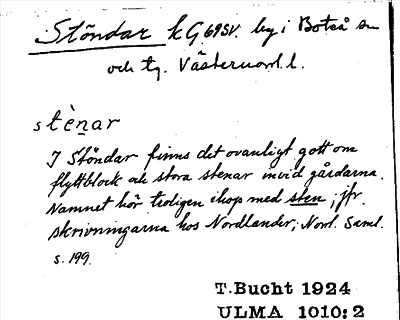 Stöndar k G 69 SV. by i Boteå sn
och tg. Västernorl. l.
stènar
I Stöndar finns det ovanligt gott om
flyttblock och stora stenar invid gårdarna.
Namnet hör troligen ihop med sten; jfr.
skrivningarna hos Nordlander, Norrl. Saml.
s. 199.
T.Bucht 1924
ULMA 1010:2